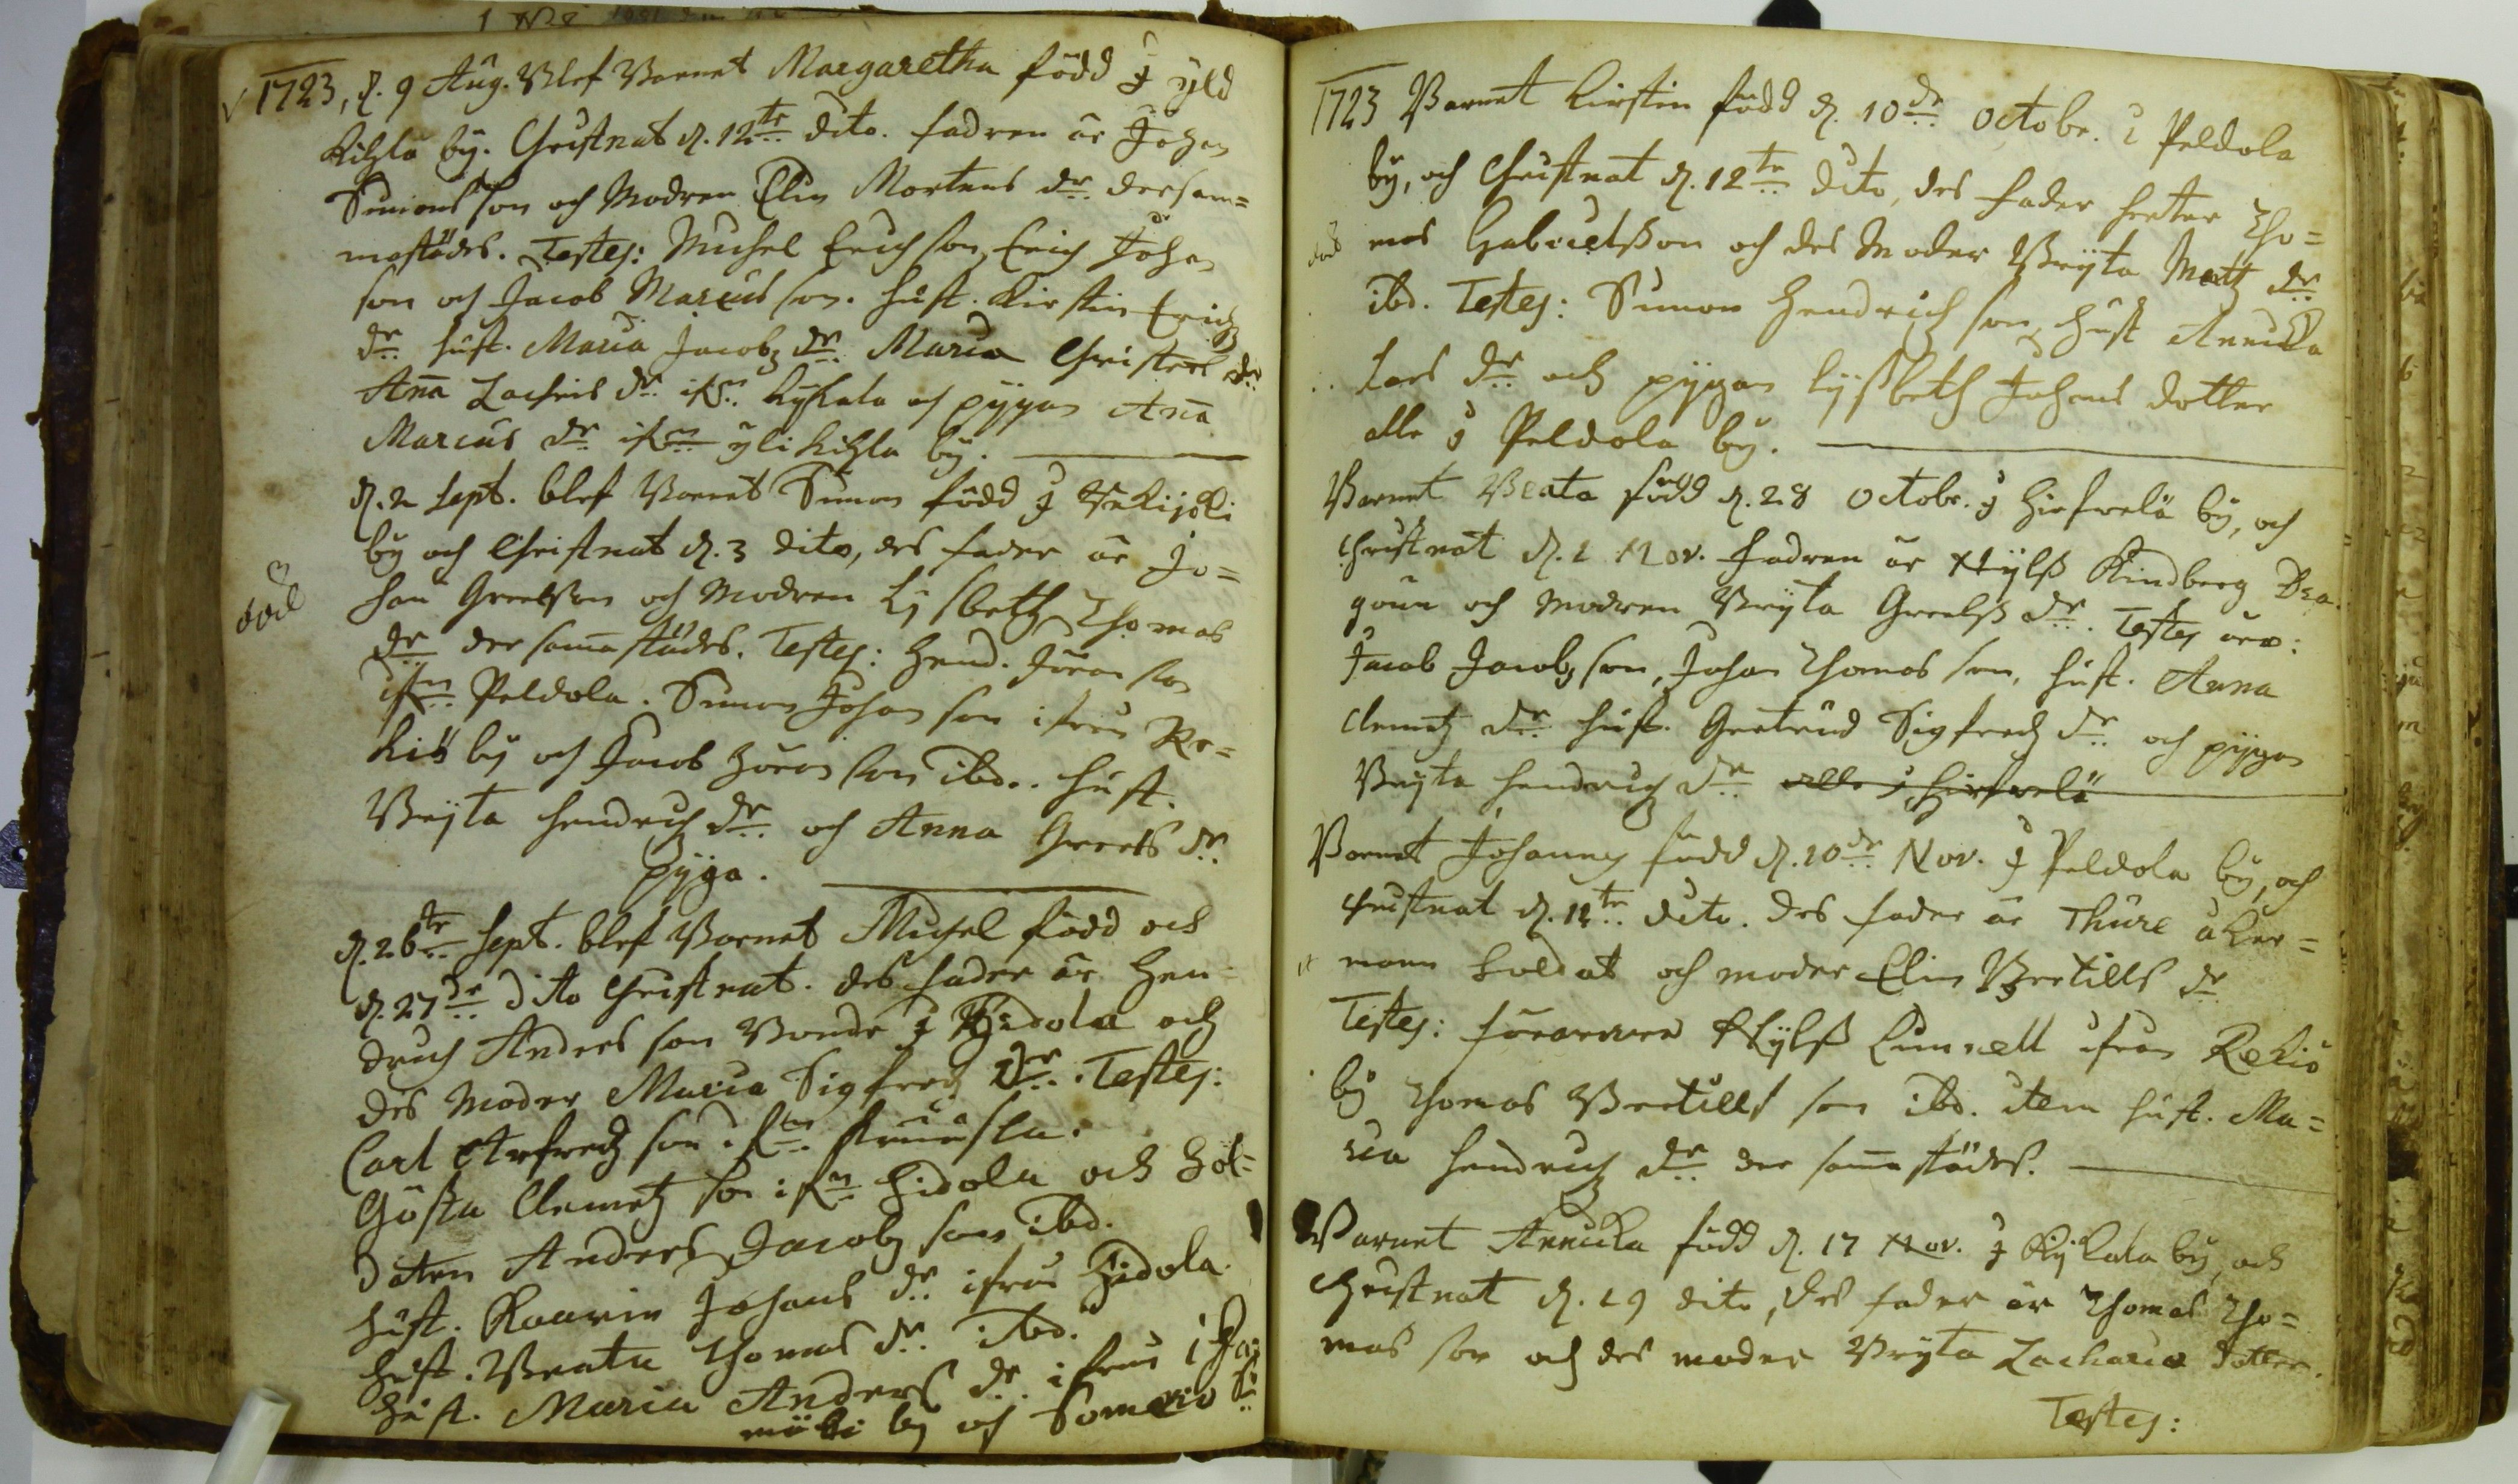 1723, d. 9 Aug. Blef Barnet Margaretha född J yld
Kihla by. Christnat d. 12te dito. fadren är Johan
Simons son och Modren Elin Mortens dr. dersam=
mastädes. Testes: Michel Erich son, Erich Johan
son och Jacob Marcus son. hust. Kirstin Erichz
dr. hust. Maria Jacobz dr. Maria Christers dr
Anna Zachris dr. ifrn. Kykala och pygan Anna
Marcus dr. ifrn yli Kihla by.
d. 2 Sept. blef Barnet Simon född J
by och Christnat d. 3 dito, des fader är Jo=
han Greelsson och Modren Lijsbeth Thomas
död
dr der samastädes. Testes: Hend. Jöran son
ifrn Peldola. Simon Johan son ifrån Re=
kiö by och Jacob Jöran son ibd. hust.
Bryta Hendrichz dr. och Anna Greels dr.
pyga.
d. 26te Sept. blef Barnet Michel född och
d. 27de dito Christnat. des fader är Hen=
drich Anders son Bonde J Hidola och
des Moder Maria Sigfredz dr. Testes:
Carl Arfredz son ifrn
Gösta Clemetz son ifrn Hidola och Sol=
daten Anders Jacobz son ibd.
hust. Kaarin Johans dr. ifrån Hidola.
hust. Beata Thomas dr. ibd.
hust. Maria Anders dr. ifrån
mäki by och Somerio
1723 Barnet Kirstin född d. 10de Octobr. i Peldola
by, och Christnat d. 12te dito, des fader heeter Tho=
död
mas Gabrielsson och des Moder Bryta Matz dr
ibd. Testes: Simon Hendrich son, hust Annicka
Lars dr och pygan Lijsbeth Johans dotter
alle J Peldola by.
Barnet Beata född d. 28 Octobr. J Hirfwelä by, och
christnat d. 1 Nov. fadren är Nylss Kindberg Dra=
goun och modren Bryta Greelss dr. Testes äro:
Jacob Jacobz son, Johan Thomas son, hust. Anna
Clemetz dr hust. Gertrud Sigfredz dr. och pygan
Bryta Hendrichz dr alle i Hirfwelä
Barnet Johannes född d. 10de Nov. J Peldola by, och
christnat d. 12te dito. des fader är Thure åker=
mann Soldat och moder Elin Bertills dr
Testes: Nylss Linnell ifrån Rekio
by Thomas Bertills son ibd. item hust. Ma=
ria Hendrichz dr der sama städes.
Barnet Annicka född d. 17 Nov. J Kykala by, och
Christnat d. 19 dito, des fader är Thomas Tho=
mas son och des moder Bryta Zacharia dotter.
Testes: